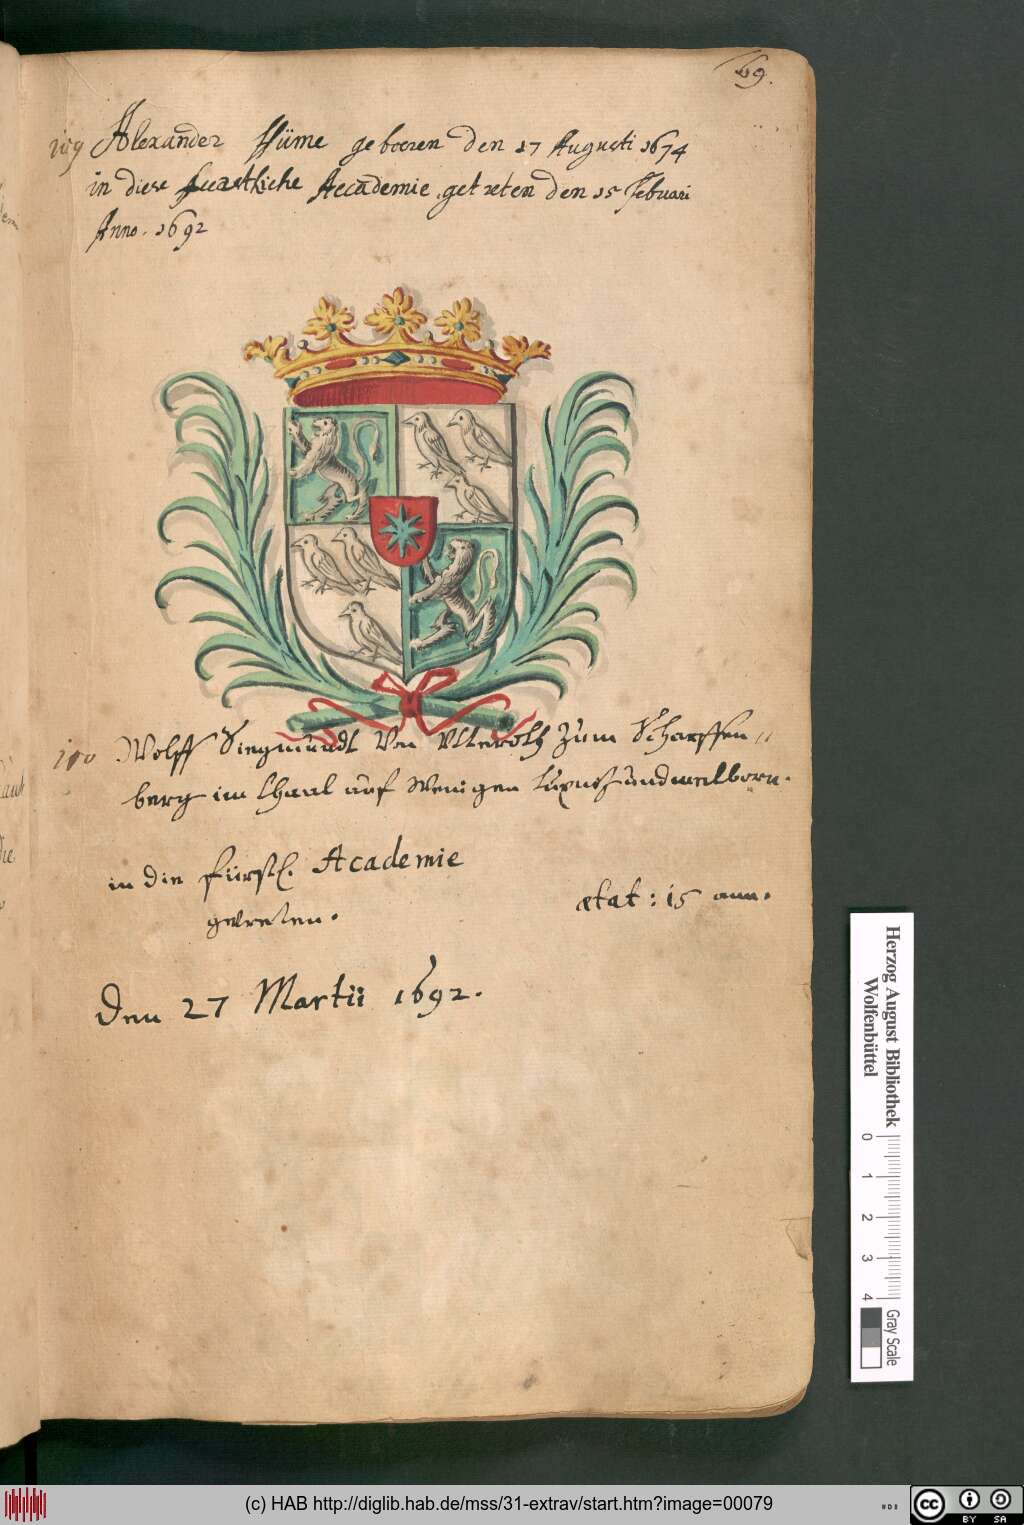 69.
159 Alexander Hüme geboeren den 17 Augusti 1674
in diese furstliche Accademie getreten den 15 Febuari
Anno. 1692
Wolff Siegmundt Von Utteroth Zum Scharffen„
berg im thaal auf Wenigen Lupnitz und
in die Fürstl. Academie
getreten.
ætat: 15 ann.
Den 27 Martii 1692.
Herzog August Bibliothek
Wolfenbüttel
0 1 2 3 4
Gray Scale
(c) HAB http://diglib.hab.de/mss/31-extrav/start.htm?image=00079
cc BY SA